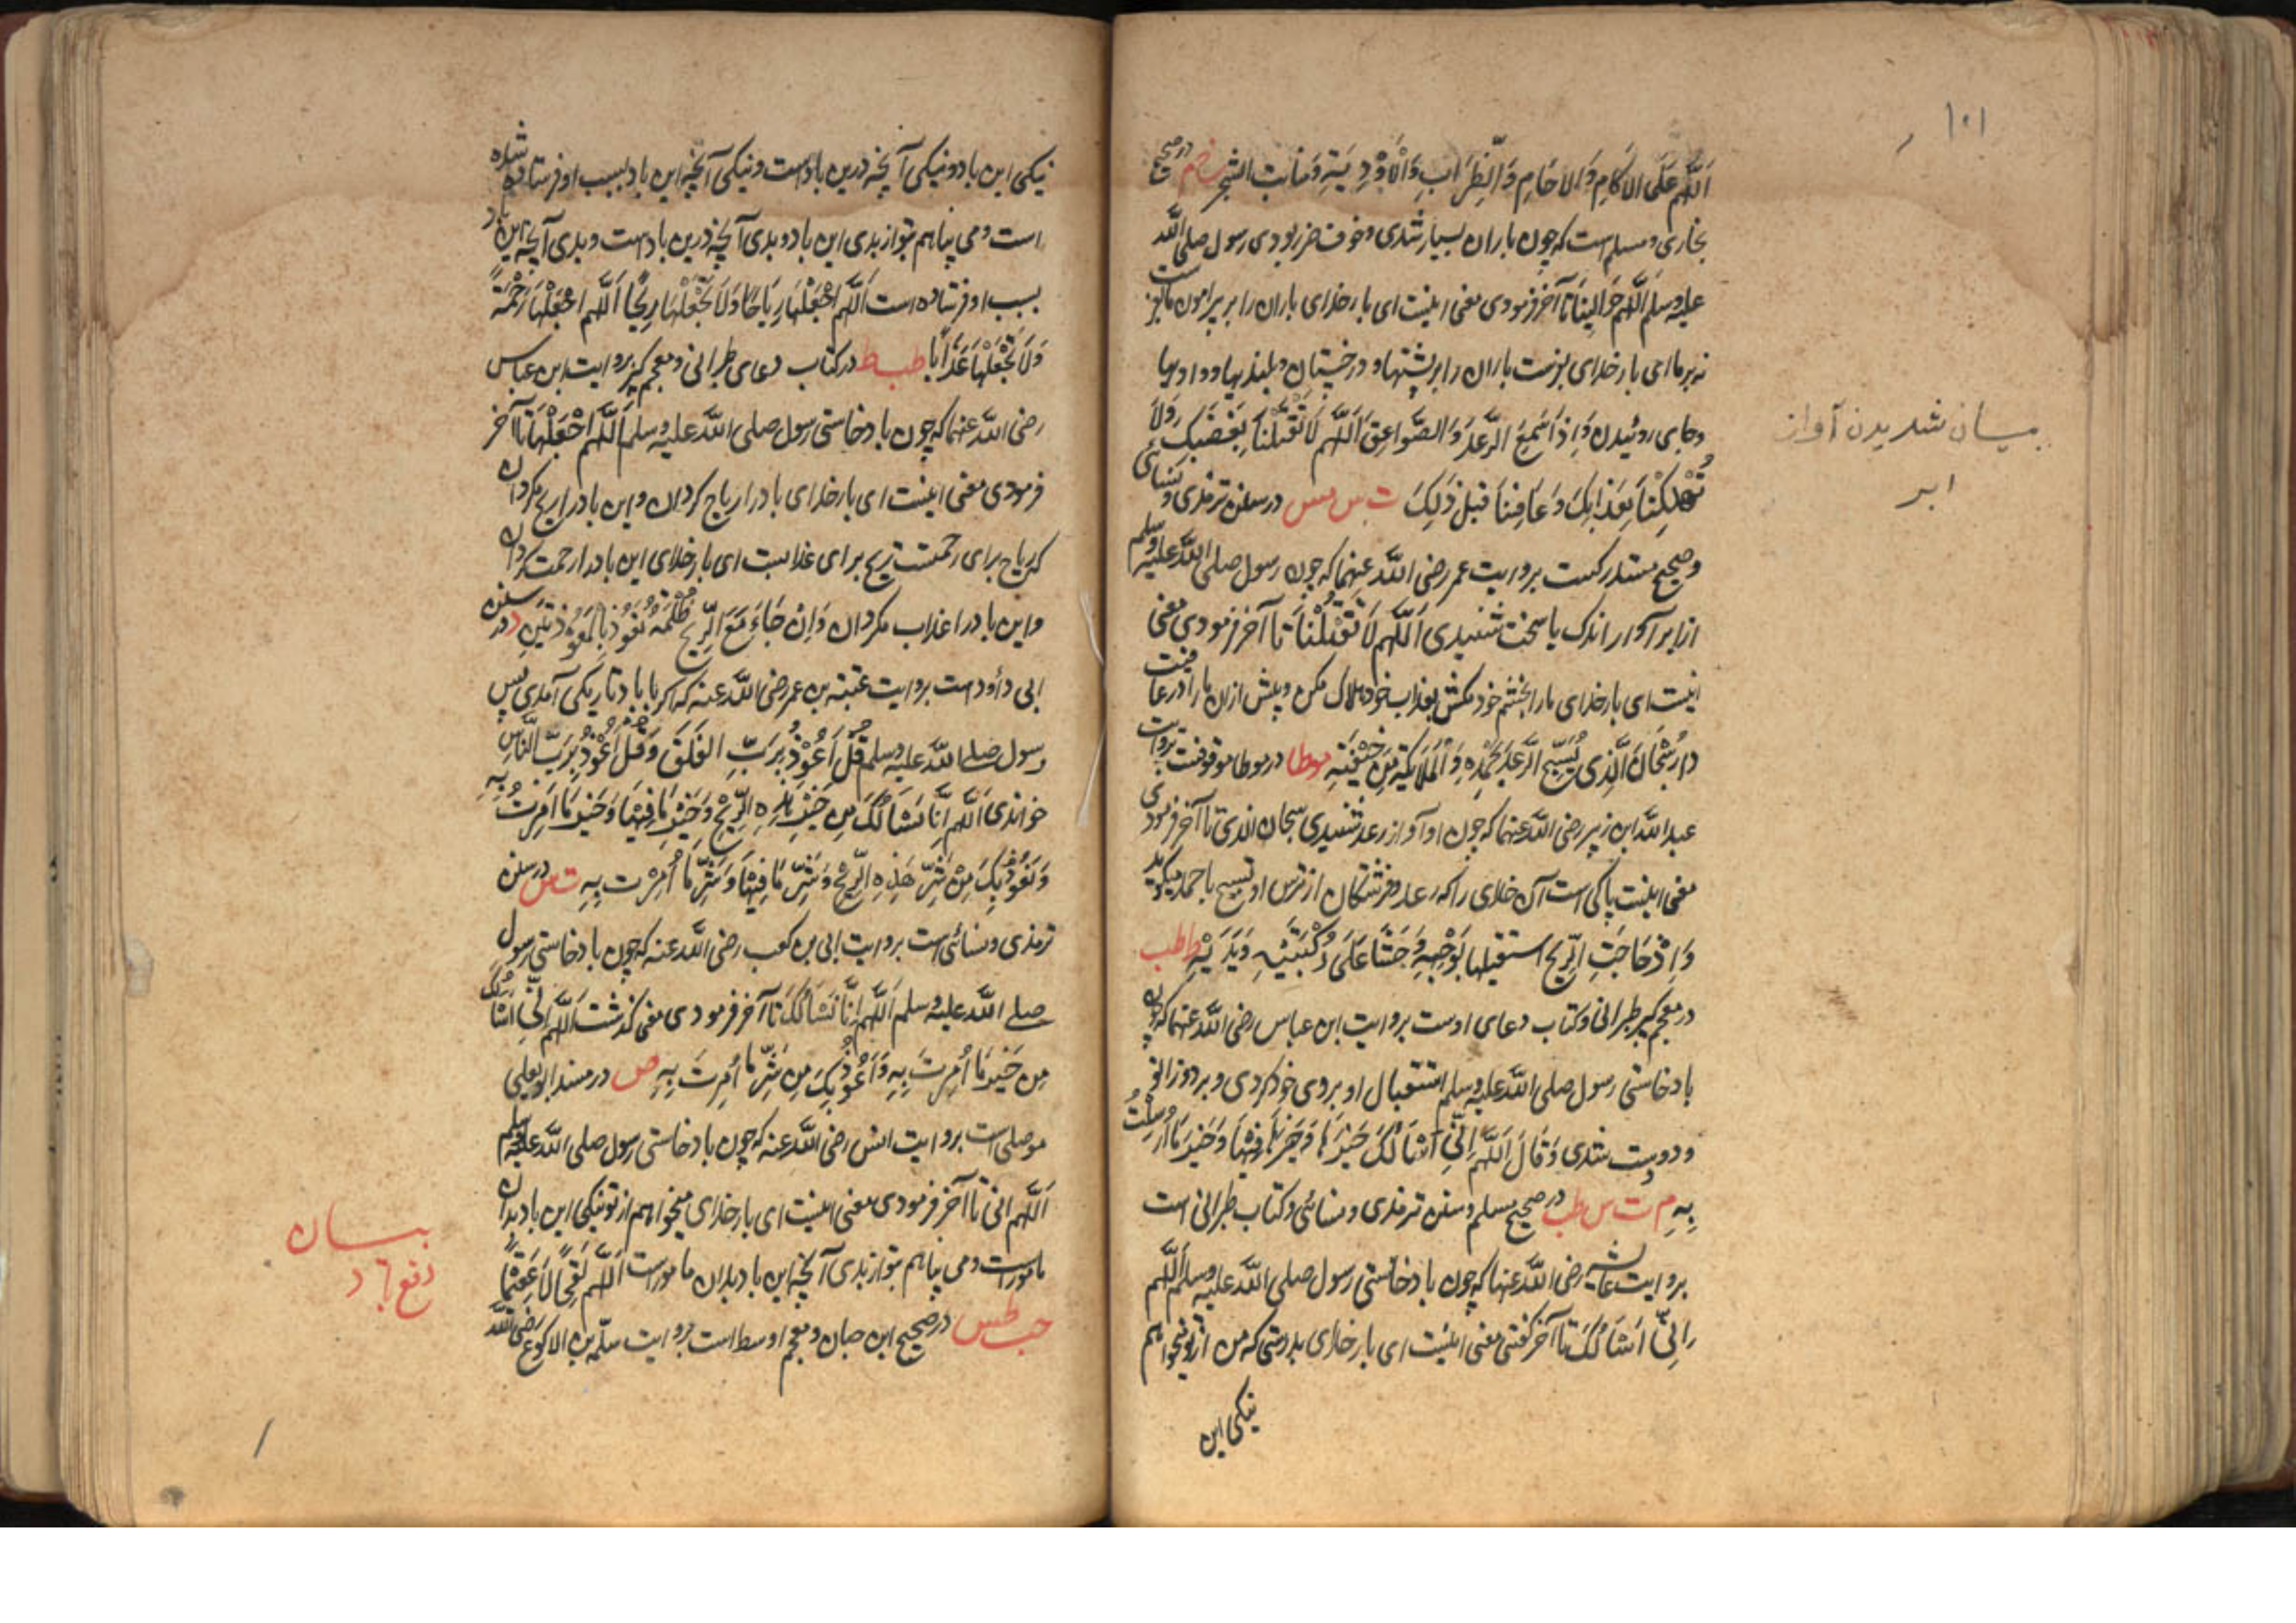 ١٠١
اَللّٰهُمَّ عَلَى الاٰكَامِ وَالاٰجَامِ وَالظِّرَابِ وَالْاَوْدِيَةِ وَمَنَابِتِ الشَّجَرِ خ م در صحیح
بخاری و مسلم است که چون باران بسیار شدی و خوف ضرر بودی رسول صلی الله
علیه وسلم اَللّٰهُمَّ حَوَالَيْنَا تا آخر فرمودی معنی اینست ای بار خدای باران را بر پیرامون ما بفرست
نه بر ما ای بار خدای بفرست باران را بر پشتها و درختستان و بلندیها و وادیها
و جای روئیدن وَاِذَا سَمِعَ الرَّعْدَ وَالصَّوَاعِقَ اَللّٰهُمَّ لَا تَقْتُلْنَا بِغَضَبِكَ وَلَا
بیان شدیدن آواز
ابر
تُهْلِكْنَا بِعَذَابِكَ وَعَافِنَا قَبْلَ ذٰلِكَ ت س مس در سنن ترمذی و نسائی
و صحیح مستدرکست بروایت عمر رضی الله عنهما که چون رسول صلی الله علیه وسلم
از ابر آواز اندک یا سخت شنیدی اَللّٰهُمَّ لَا تَقْتُلْنَا تا آخر فرمودی معنی
اینست ای بار خدای ما را بخشم خود مکش بعذاب خود هلاک مکن و پیش ازان ما را در عافیت
دار سُبْحَانَ الَّذِي يُسَبِّحُ الرَّعْدُ بِحَمْدِهِ وَالْمَلَائِكَةُ مِنْ خِيْفَتِهِ موطا در موطا موقوفست بروایت
عبدالله ابن زبیر رضی الله عنهما که چون او آواز رعد شنیدی سبحان الذی تا آخر فرمودی
معنی اینست پاکی است آن خدای را که رعد و فرشتگان از ترس او تسبیح با حمد میگوید
وَاِذَا هَاجَتِ الرِّيْحُ استقبلها بِوَجْهِهِ وَجَثَا عَلَى رُكْبَتَيْهِ وَيَدَيْهِ ط طب
در معجم کبیر طبرانی و کتاب دعای اوست بروایت ابن عباس رضی الله عنهما که چون
باد خاستی رسول صلی الله علیه وسلم استقبال او بروی خود کردی و بر دو زانو
و دو دست شدی وَقَالَ اَللّٰهُمَّ اِنِّي اَسْاَلُكَ خَيْرَهَا وَخَيْرَ مَا فِيْهَا وَخَيْرَ مَا اُرْسِلَتْ
بِهِ م ت س طب در صحیح مسلم و سنن ترمذی و نسائی و کتاب طبرانی است
بروایت عائشه رضی الله عنها که چون باد خاستی رسول صلی الله علیه وسلم اللّٰهم
اِنِّيْ اَسْاَلُكَ تا آخر گفتی معنی اینست ای بار خدای بدرستی که من از تو میخواهم
نیکی این
نیکی این باد و نیکی آنچه درین بادست و نیکی آنچه این باد بسبب او فرستاده شده
است و می پناهم بتو از بدی این باد و بدی آنچه درین بادست و بدی آنچه این باد
بسبب او فرستاده است اَللّٰهُمَّ اجْعَلْهَا رِيَاحًا وَلَا تَجْعَلْهَا رِيْحًا اَللّٰهُمَّ اجْعَلْهَا رَحْمَةً
وَلَا تَجْعَلْهَا عَذَابًا طب ط در کتاب دعای طبرانی و معجم کبیر بروایت ابن عباس
رضی الله عنهما که چون باد خاستی رسول صلی الله علیه وسلم اَللّٰهُمَّ اجْعَلْهَا تا آخر
فرمودی معنی اینست ای بار خدای باد را ریاح گردان و این باد را ریح مگردان
که ریاح برای رحمتست ریح برای عذابست ای بار خدای این باد را رحمت گردان
و این باد را عذاب مگردان وَاِنْ جَاءَ مَعَ الرِّيْحِ ظُلْمَةٌ تَعَوَّذَ بِالْمُعَوَّذَتَيْنِ د در سنن
ابی داؤدست بروایت عقبه بن عمر رضی الله عنه که اگر با باد تاریکی آمدی پس
رسول صلے الله علیه وسلم قُلْ اَعُوْذُ بِرَبِّ الْفَلَقِ وَقُلْ اَعُوْذُ بِرَبِّ النَّاسِ
خواندی اَللّٰهُمَّ اِنَّا نَسْاَلُكَ مِنْ خَيْرِ هٰذِهِ الرِّيْحِ وَخَيْرِ مَا فِيْهَا وَخَيْرِ مَا اُمِرَتْ بِهِ
وَنَعُوْذُ بِكَ مِنْ شَرِّ هٰذِهِ الرِّيْحِ وَشَرِّ مَا فِيْهَا وَشَرِّ مَا اُمِرَتْ بِهِ ت س در سنن
ترمذی و نسائی است بروایت ابی بن کعب رضی الله عنه که چون باد خاستی رسول
صلے الله علیه وسلم اَللّٰهُمَّ اِنَّا نَسْاَلُكَ تا آخر فرمودی معنی گذشت اَللّٰهُمَّ اِنِّي اَسْاَلُكَ
مِنْ خَيْرِ مَا اُمِرَتْ بِهِ وَاَعُوْذُ بِكَ مِنْ شَرِّ مَا اُمِرَتْ بِهِ ص در مسند ابو یعلی
موصلی است بروایت انس رضی الله عنه که چون باد خاستی رسول صلی الله علیه وسلم
اَللّٰهُمَّ انی تا آخر فرمودی معنی اینست ای بار خدای میخواهم از تو نیکی این باد بدان
مامورست و می پناهم بتو از بدی آنچه این باد بدان مامورست اَللّٰهُمَّ لَقْحًا لَا عَقِيْمًا
بیان
دفع باد
حب طس در صحیح ابن حبان و معجم اوسط است بروایت سلمه بن الاکوع رضی الله